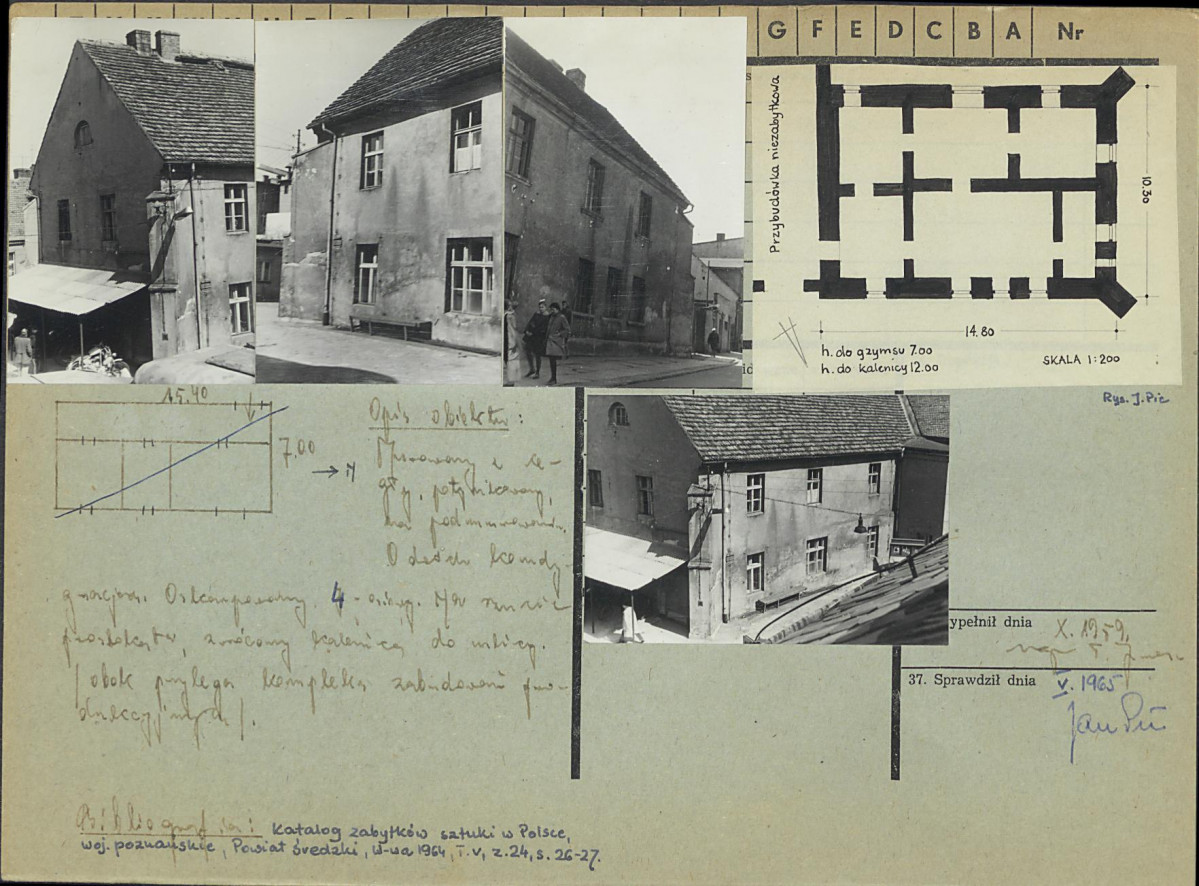 G F E D C B A Nr
Przybudówka niezabytkowa
10.30
14.80
h. do gzymsu 7.00
h. do kalenicy 12.00
SKALA 1:200
Rys. J. Pic
15.40
7.00
Opis obiektu:
Murowany z ce-
gły, potynkowany,
na podmurowaniu.
O dwóch kondy-
gnacjach. 4-osiowy. Ma
prostokąta, zwrócony kalenicą do ulicy.
/obok przylega kompleks zabudowań pro-
dukcyjnych/.
ypełnił dnia X. 1959.
37. Sprawdził dnia V. 1965
Bibliografia: Katalog zabytków sztuki w Polsce,
woj. poznańskie, Powiat średzki, W-wa 1964, T. V, z. 24, s. 26-27.